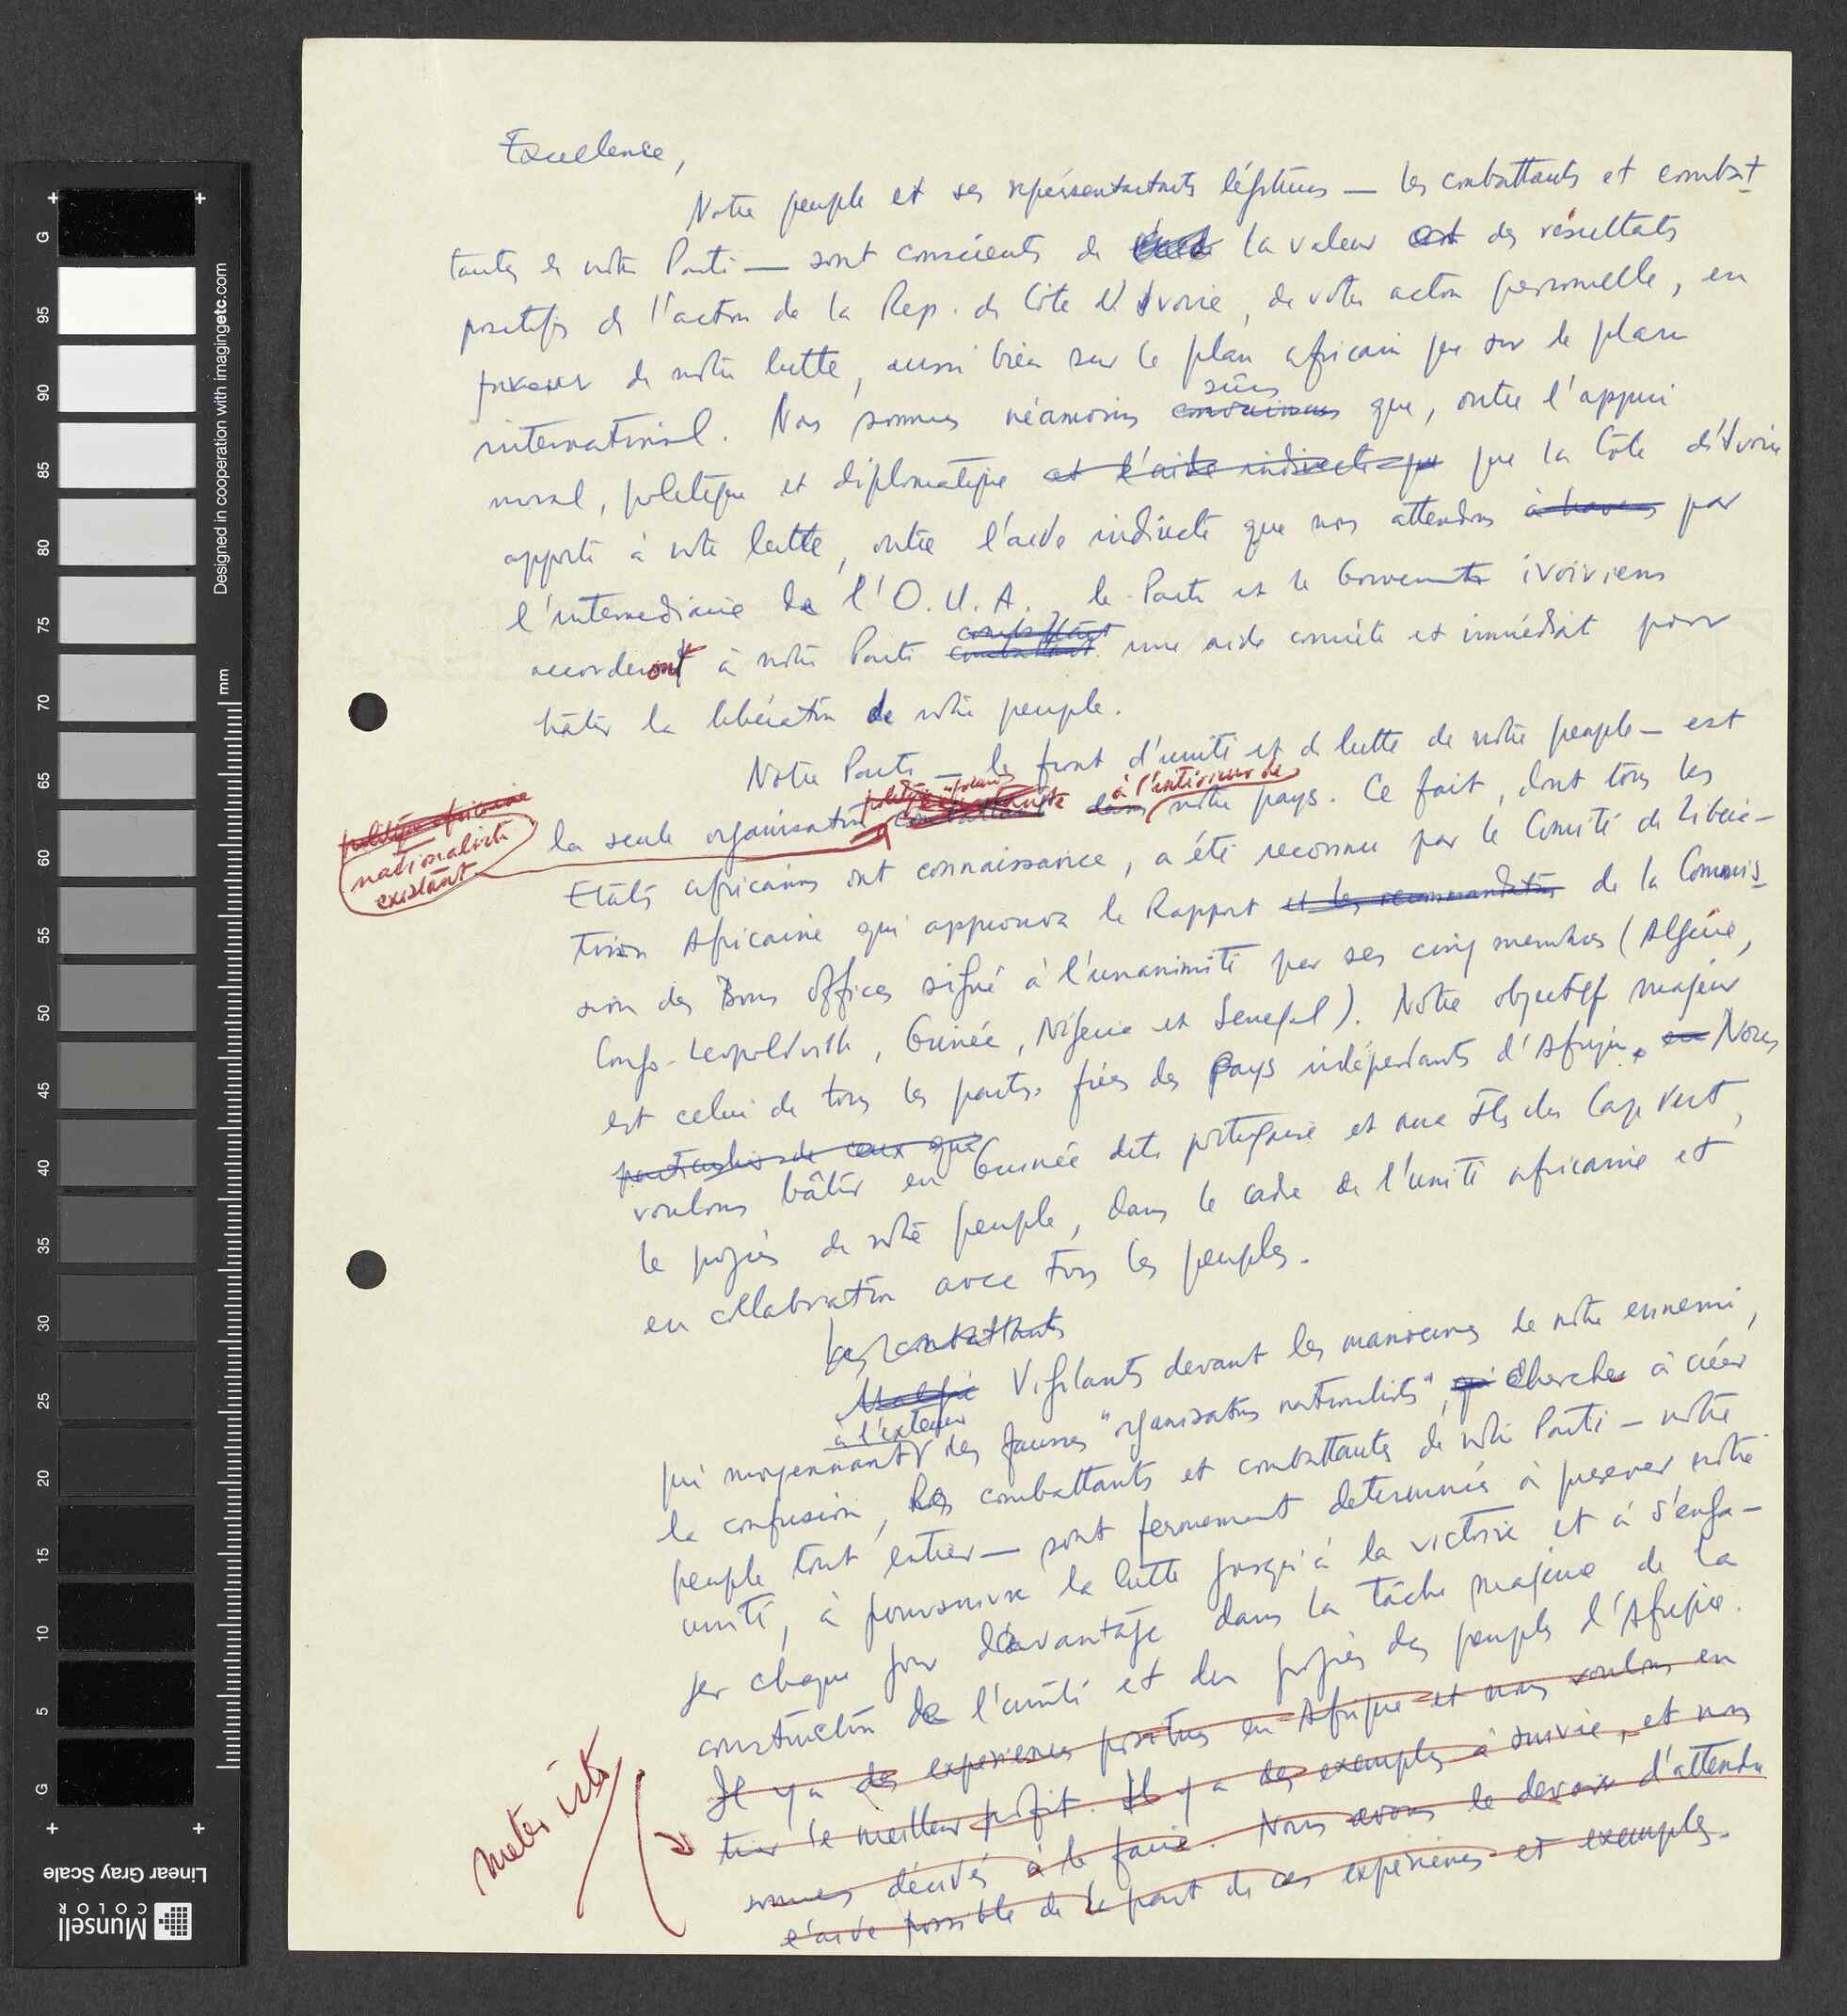 Excellence,
Notre peuple et ses représentants légitimes — les combattants et combat-
tantes de notre Parti — sont conscients de la valeur est des résultats
positifs de l'action de la Rep. de Côte d'Ivoire, de votre action personnelle, en
faveur de notre lutte, aussi bien sur le plan africain que sur le plan
sûrs
international. Nous sommes néamoins convaincus que, outre l'appui
moral, politique et diplomatique et l'aide indirecte que que la Côte d'Ivoire
apporte à notre lutte, outre l'aide indirecte que nous attendons à travers par
l'intermediaire de l'O.U.A., le Parti et le Gouvernement ivoiriens
combattant
accorderont à notre Parti combattant une aide concrète et immédiate pour
hâter la libération de notre peuple.
Notre Parti — le front d'unité et de lutte de notre peuple — est
à l'intérieur de
la seule organisation combattante dans notre pays. Ce fait, dont tous les
politique africaine
nationaliste
existant
Etats africains ont connaissance, a été reconnu par le Comité de Libéra-
tion Africaine qui approuva le Rapport et les recommandations de la Commis-
sion des Bons Offices signé à l'unanimité par ses cinq membres (Algérie,
Congo-Leopoldville, Guinée, Nigeria et Senegal). Notre objectif majeur
est celui de tous les partis frères des Pays indépendants d'Afrique. en Nous
particulier de ceux que
voulons bâtir en Guinée dite portugaise et aux Iles du Cap Vert,
le progrès de notre peuple, dans le cadre de l'unité africaine et
en collaboration avec tous les peuples.
Les combattants
Malgré Vigilants devant les manoeuvres de notre ennemi,
à l'exterieur
qui moyennant des fausses "organisations nationalistes", qui cherche à créer
la confusion, les combattants et combattantes de notre Parti — notre
peuple tout entier — sont fermement determinés à preserver notre
unité, à poursuivre la lutte jusqu'à la victoire et à s'enga-
ger chaque jour davantage dans la tâche majeure de la
construction de l'unité et du progrès des peuples d'Afrique.
Il y a des experiences positives en Afrique et nous voulons en
tirer le meilleur profit. Il y a des exemples à suivre, et nous
sommes décidés à le faire. Nous avons le devoir d'attendre
l'aide possible de la part de ces expériences et exemples.
meter isto